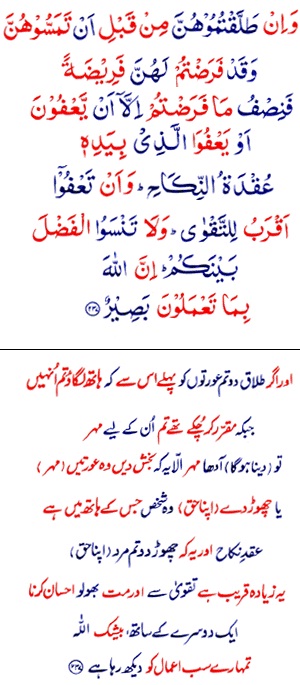 وَاِنْ طَلَّقْتُمُوْهُنَّ مِنْ قَبْلِ اَنْ تَمَسُّوْهُنَّ
وَقَدْ فَرَضْتُمْ لَهُنَّ فَرِيْضَةً
فَنِصْفُ مَا فَرَضْتُمْ اِلَّاۤ اَنْ يَّعْفُوْنَ
اَوْ يَعْفُوَا الَّذِىْ بِيَدِهٖ
عُقْدَةُ النِّكَاحِ ؕ وَاَنْ تَعْفُوْۤا
اَقْرَبُ لِلتَّقْوٰى ؕ وَلَا تَنْسَوُا الْفَضْلَ
بَيْنَكُمْ ؕ اِنَّ اللّٰهَ
بِمَا تَعْمَلُوْنَ بَصِيْرٌ ﴿۲۳۷﴾
اور اگر طلاق دو تم عورتوں کو پہلے اس سے کہ ہاتھ لگاؤ تم اُنہیں
جبکہ مقرر کر چُکے تھے تم اُن کے لیے مہر
تو (دینا ہوگا) آدھا مہر الّا یہ کہ بخش دیں وہ عورتیں (مہر)
یا چھوڑ دے (اپنا حق) وہ شخص جس کے ہاتھ میں ہے
عقدِ نکاح اور یہ کہ چھوڑ دو تم مرد (اپنا حق)
یہ زیادہ قریب ہے تقویٰ سے اور مت بھولو احسان کرنا
ایک دوسرے کے ساتھ، بیشک اللہ
تمہارے سب اعمال کو دیکھ رہا ہے ﴿۲۳۷﴾